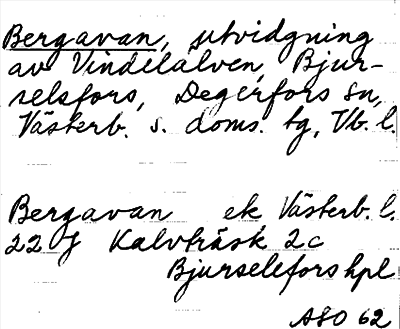 Bergavan, utvidgning
av Vindelälven, Bjur-
selsfors, Degerfors sn,
Västerb. s. doms. tg, Vb. l.
Bergavan ek Västerb. l.
22 J Kalvträsk 2c
Bjurselefors hpl
ASO 62